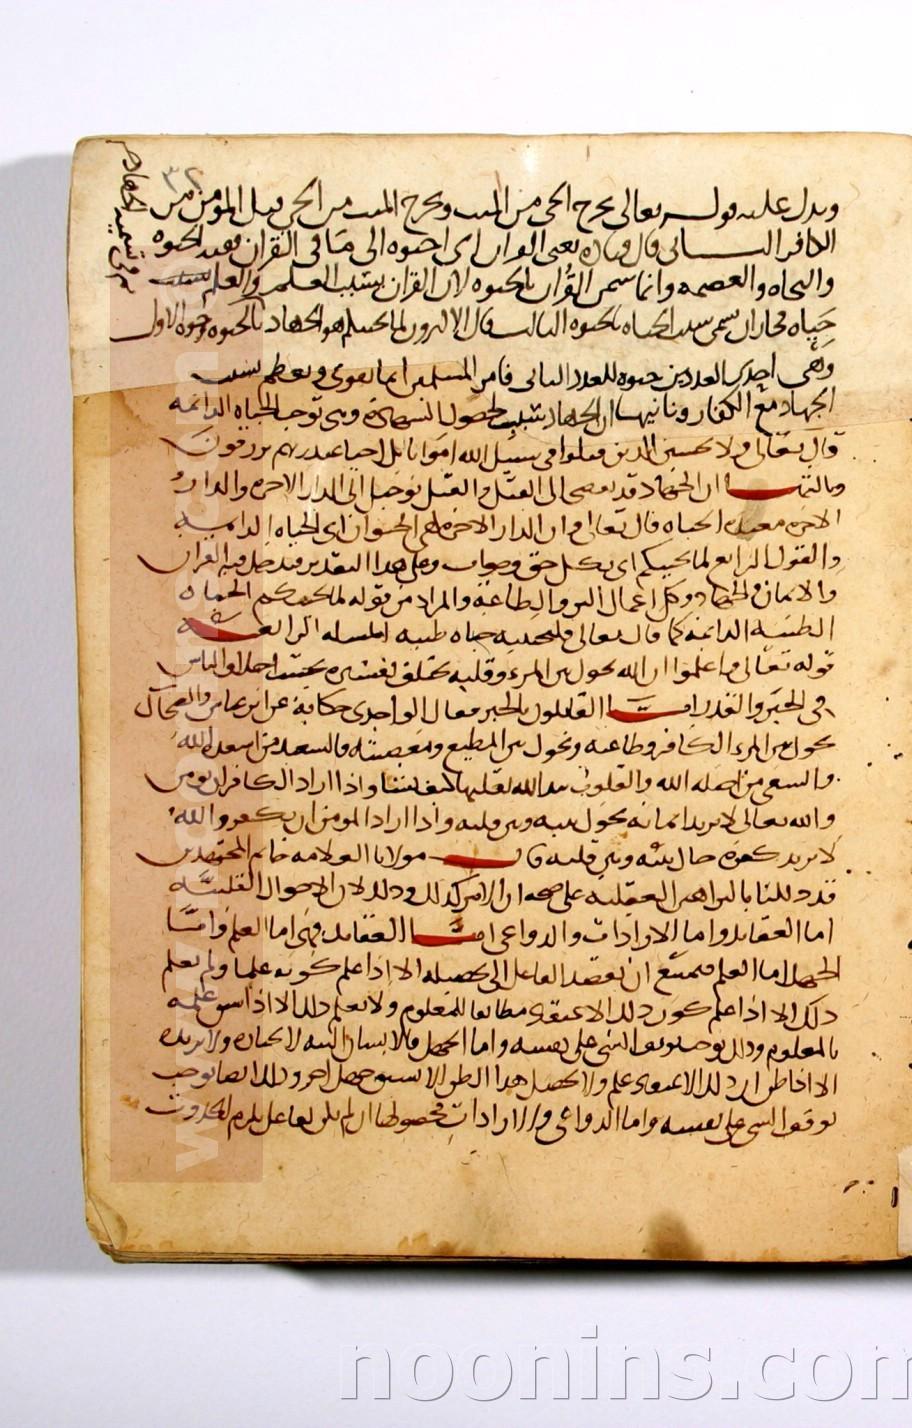 وىدل عليه قوله تعالى يخرج الحي من الميت ويخرج الميت من الحي قيل المؤمن من
الكافر الثاني قال قتاده يعنى القران اى اجيبوه الى ما فى القران ففيه الحيوه
والنجاه والعصمه وانما سمى القران بالحيوه لان القران سبب العلم والعلم
حياه فجاز ان يسمى سبب الحياه بالحيوه الثالث قال الاكثرون لما يحييكم هو الجهاد
وهى احدى العددين حيوه للعدد الثانى فامر المسلمين انما يقوى ويعظم بسبب
الجهاد مع الكفار وثانيها ان الجهاد سبب لحصول الشهادة وهى توجب الحياه الدائمه
قال تعالى ولا تحسبن الذين قتلوا فى سبيل الله امواتا بل احيا عند ربهم يرزقون
وثالثها ان الجهاد قد يفضى الى القتل والقتل يوصل الى الدار الاخره والدار
الاخره معدن الحياه قال تعالى وان الدار الاخره لهى الحيوان اى الحياه الدائمه
والقول الرابع لما يحييكم اى لكل حق وصواب وعلى هذا التقدير فيدخل فيه القران
والايمان والجهاد وكل اعمال البر والطاعة والمراد من قوله لما يحييكم الحياه
الطيبه الدائمه كما قال تعالى فلنحيينه حياه طيبه المسله الرابعه
قوله تعالى واعلموا ان الله يحول بين المرء وقلبه يختلف تفسيره بحسب اختلاف الناس
فى الجبر والقدر اما القائلون بالجبر فقال الواحدى حكاية عن ابن عباس والضحاك
يحول بين المرء الكافر وطاعته ويحول بين المطيع ومعصيته فالسعيد من اسعده الله
والشقى من اضله الله والقلوب بيد الله يقلبها كيف يشا واذا اراد الكافر ان يومن
والله تعالى لا يريد ايمانه يحول بينه وبين قلبه واذا اراد المومن ان يكفر والله
لا يريد كفره حال بينه وبين قلبه قال مولانا العلامه خاتم المجتهدين
قد دللنا بالبراهين العقليه على صحه ان الامر كذلك وذلك لان الاحوال القلبيه
اما العقايد واما الارادات والدواعى اما العقايد فهى اما العلم واما
الجهل اما العلم فيمتنع ان يقصد الفاعل الى تحصيله الا اذا علم كونه علما ولم يعلم
ذلك الا اذا علم كون ذلك الاعتقاد مطابقا للمعلوم ولا يعلم ذلك الا اذا سبق علمه
بالمعلوم وذلك يوجب توقف الشى على نفسه واما الجهل فالانسان البته لا يختاره ولا يريده
الا اذا ظن ان ذلك الاعتقاد علم ولا يحصل هذا الظن الا بسبق جهل اخر وذلك ايضا يوجب
توقف الشى على نفسه واما الدواعى والارادات فحصولها ان لم يكن بفاعل يلزم الحدوث